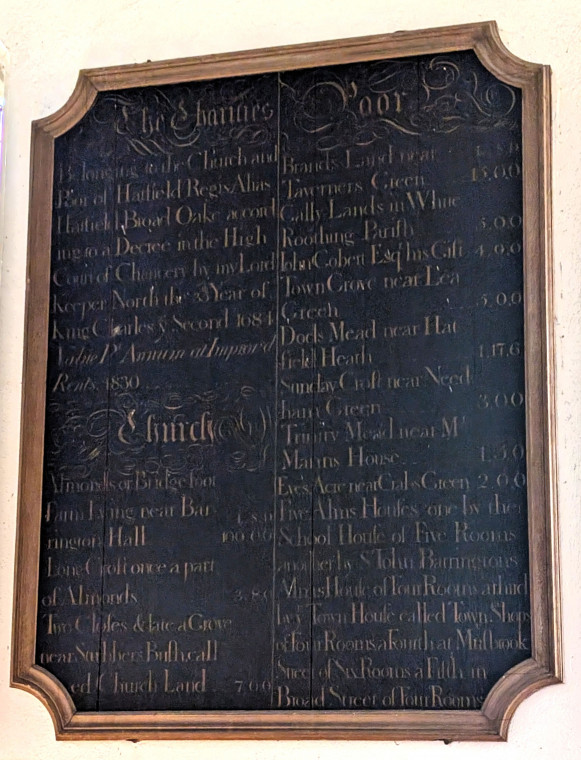 The Charities
Belonging to the Church and
Poor of Hatfield Regis Alias
Hatfield Broad Oake accord
ing to a Decree in the High
Court of Chancery by my Lord
Keeper North the 33 Year of
King Charles ye Second 1684
Value Pr Annum at Improved
Rents. 1830
Church
Almonds or Bridge foot
farm Lying near Bar
rington Hall 100.0.0
Long Croft once a part
of Almonds 3.8.0
Two Closes & late a Grove
near Stubbers Bush call
ed Church Land 7.0.0
Poor
Brands Land near
Taverners Green 15.0.0
Cally Lands in White
Roothing Parish 5.0.0
John Cobert Esqr his Gift 4.0.0
Town Grove near Lea
Green 5.0.0
Docks Mead near Hat
field Heath 1.17.6
Sunday Croft near Need
ham Green 3.0.0
Trinity Mead near Mr
Martins House
Eve's Acre near Crabs Green 2.0.0
Five Alms Houses one by the
School House of Five Rooms
another by Sr John Barringtons
Alms House of Four Rooms a third
by ye Town House called Town Shops
of Four Rooms a Fourth at
Street of Six Rooms a Fifth in
Broad Street of Four Rooms